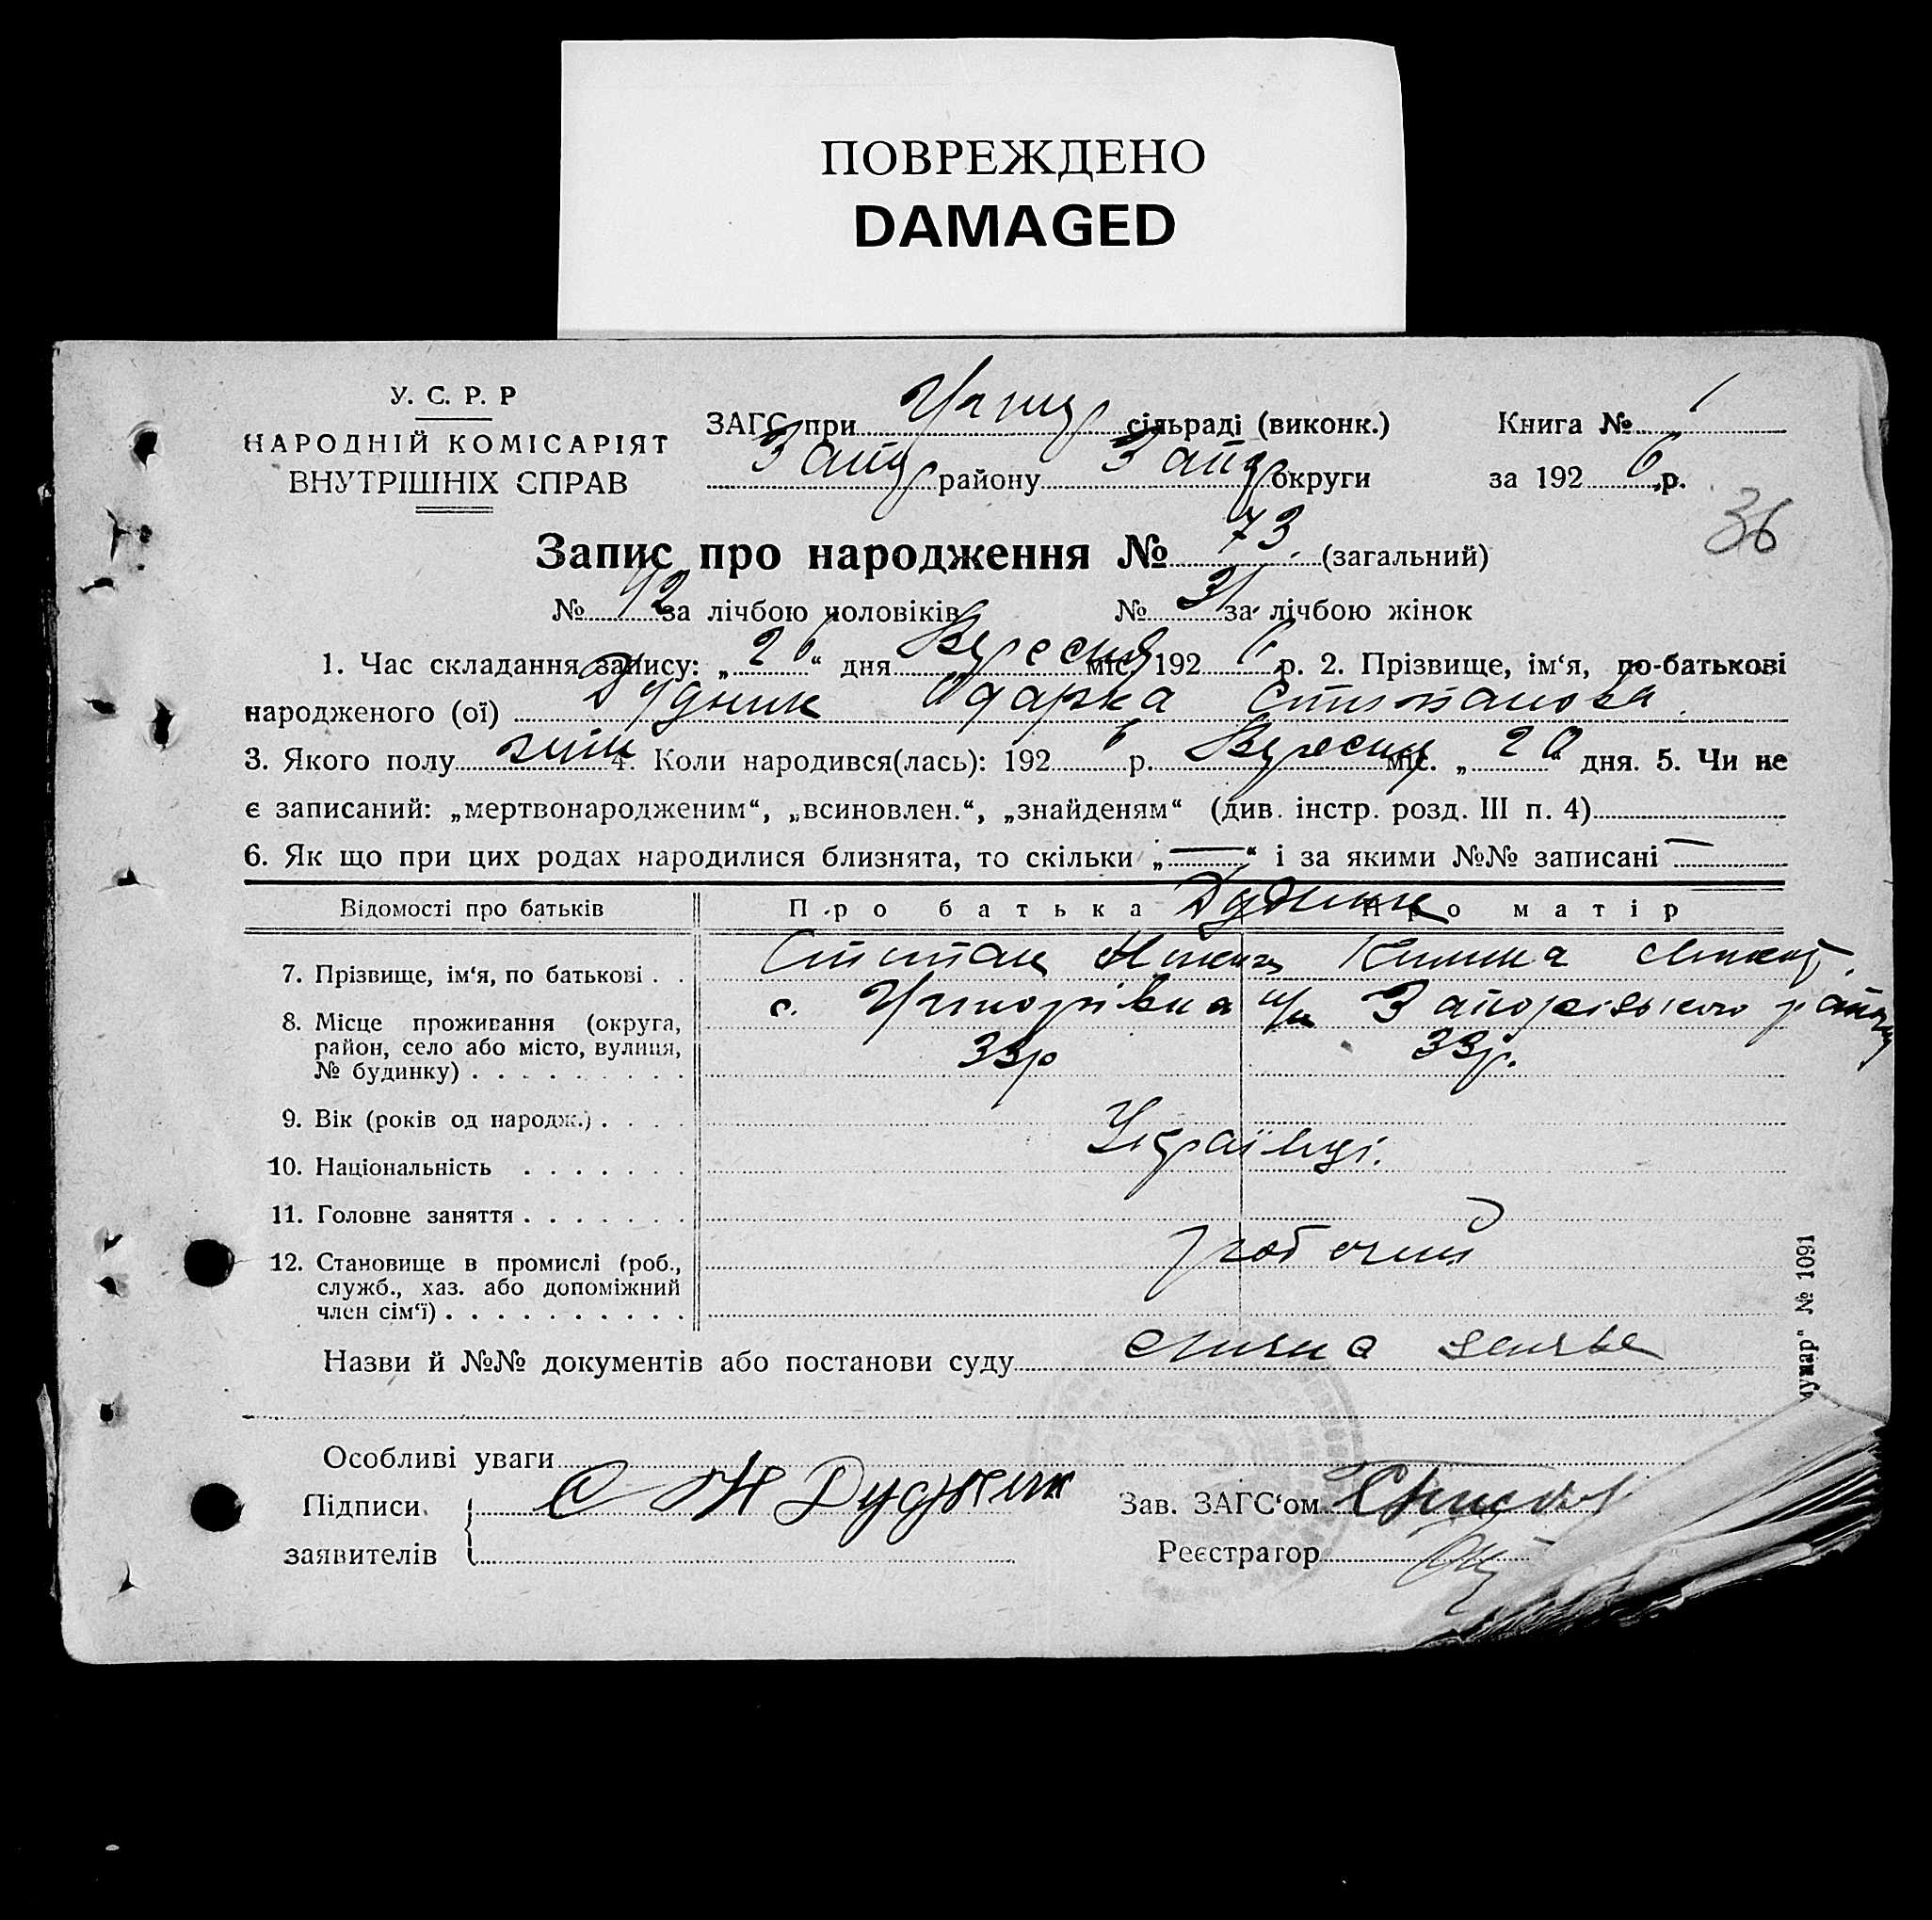 ПОВРЕЖДЕНО
DAMAGED
У. С. Р. Р
НАРОДНІЙ КОМІСАРІЯТ
ВНУТРІШНІХ СПРАВ
ЗАГС при сільраді (виконк.)
Запор району Запор округи
Книга № 1
за 1926 р.
36
Запис про народження № 73. (загальний)
№ 42 за лічбою чоловіків № 31 за лічбою жінок
1. Час складання запису: „26“ дня Вересня міс. 1926 р. 2. Прізвище, ім‘я, по-батькові
народженого (ої) Дудник Одарка Степанова.
3. Якого полу жін 4. Коли народився(лась): 1926 р. Вересня міс. „20“ дня. 5. Чи не
є записаний: „мертвонародженим“, „всиновлен.“, „знайденям“ (див. інстр. розд. III п. 4)
6. Як що при цих родах народилися близнята, то скільки „—“ і за якими №№ записані —
Відомості про батьків Про батька Про матір
Дудник
7. Прізвище, ім‘я, по батькові . . Степан
8. Місце проживання (округа,
район, село або місто, вулиця,
№ будинку) . . . . . . . . .
с. Запорізького району
33р 33р.
9. Вік (років од народж.) . . . .
10. Національність . . . . . . . Українці.
11. Головне заняття . . . . . . .
12. Становище в промислі (роб.,
служб., хаз. або допоміжний
член сім‘ї) . . . . . . . . . .
робочий
Назви й №№ документів або постанови суду лична заява
Особливі уваги
Підписи
заявителів
С Н Дудник
Зав. ЗАГС‘ом
Реєстратор
№ 1091